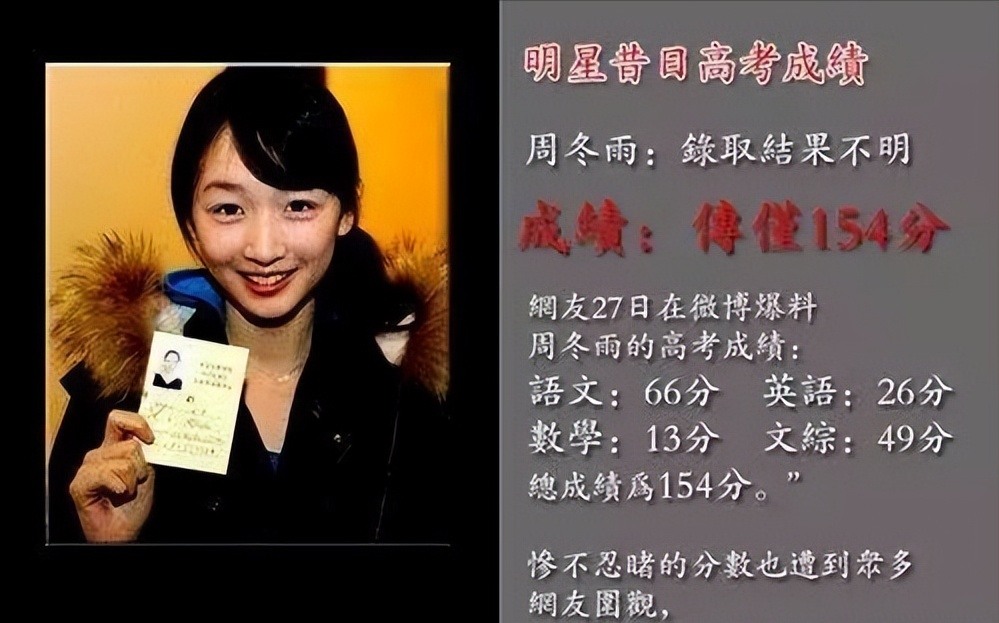 明星昔日高考成績
周冬雨：錄取結果不明
成績：傳僅154分
網友27日在微博爆料
周冬雨的高考成績：
語文：66分　英語：26分
數學：13分　文綜：49分
總成績爲154分。”
慘不忍睹的分數也遭到眾多
網友圍觀，